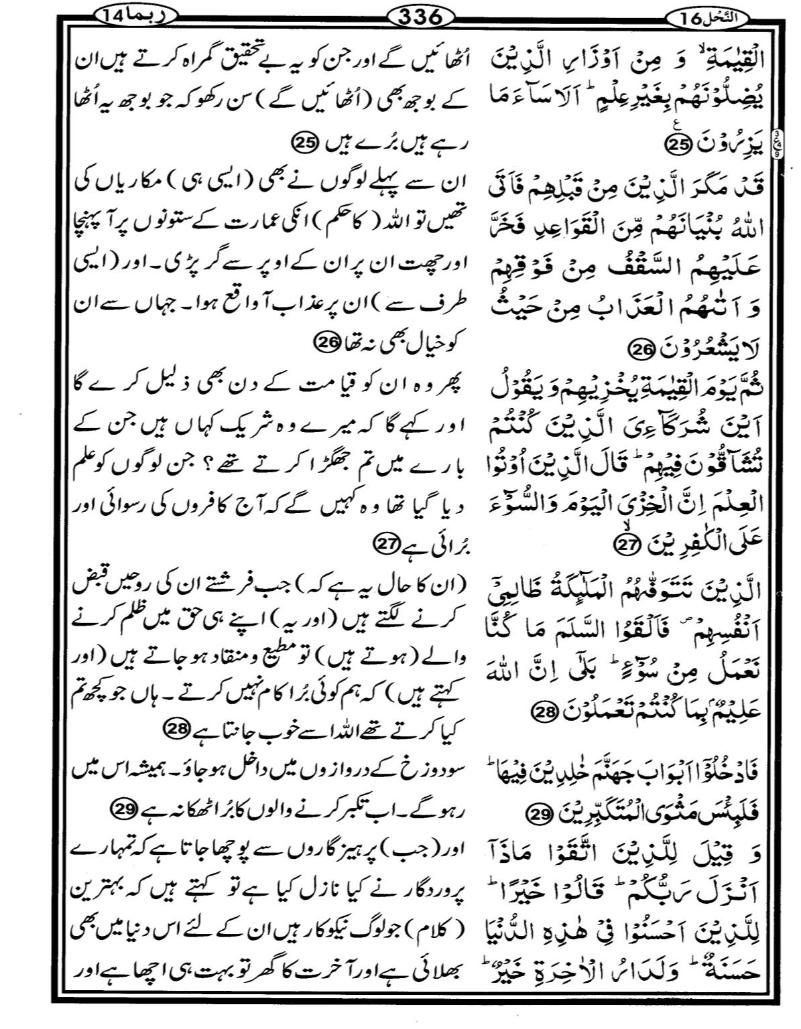 النَّحْل 16
336
ربما 14
الْقِيٰمَةِ ۙ وَ مِنْ اَوْزَارِ الَّذِيْنَ
يُضِلُّوْنَهُمْ بِغَيْرِ عِلْمٍ ؕ اَلَا سَآءَ مَا
يَزِرُوْنَ ۧ 25
قَدْ مَكَرَ الَّذِيْنَ مِنْ قَبْلِهِمْ فَاَتَى
اللّٰهُ بُنْيَانَهُمْ مِّنَ الْقَوَاعِدِ فَخَرَّ
عَلَيْهِمُ السَّقْفُ مِنْ فَوْقِهِمْ
وَ اَتٰىهُمُ الْعَذَابُ مِنْ حَيْثُ
لَا يَشْعُرُوْنَ 26
ثُمَّ يَوْمَ الْقِيٰمَةِ يُخْزِيْهِمْ وَ يَقُوْلُ
اَيْنَ شُرَكَآءِىَ الَّذِيْنَ كُنْتُمْ
تُشَآقُّوْنَ فِيْهِمْ ؕ قَالَ الَّذِيْنَ اُوْتُوا
الْعِلْمَ اِنَّ الْخِزْىَ الْيَوْمَ وَ السُّوْٓءَ
عَلَى الْكٰفِرِيْنَ ۙ 27
الَّذِيْنَ تَتَوَفّٰىهُمُ الْمَلٰٓئِكَةُ ظَالِمِىْٓ
اَنْفُسِهِمْ ۪ فَاَلْقَوُا السَّلَمَ مَا كُنَّا
نَعْمَلُ مِنْ سُوْٓءٍ ؕ بَلٰٓى اِنَّ اللّٰهَ
عَلِيْمٌۢ بِمَا كُنْتُمْ تَعْمَلُوْنَ 28
فَادْخُلُوْٓا اَبْوَابَ جَهَنَّمَ خٰلِدِيْنَ فِيْهَا ؕ
فَلَبِئْسَ مَثْوَى الْمُتَكَبِّرِيْنَ 29
وَ قِيْلَ لِلَّذِيْنَ اتَّقَوْا مَاذَآ
اَنْزَلَ رَبُّكُمْ ؕ قَالُوْا خَيْرًا ؕ
لِلَّذِيْنَ اَحْسَنُوْا فِىْ هٰذِهِ الدُّنْيَا
حَسَنَةٌ ؕ وَ لَدَارُ الْاٰخِرَةِ خَيْرٌ ؕ
اُٹھائیں گے اور جن کو یہ بے تحقیق گمراہ کرتے ہیں ان
کے بوجھ بھی (اُٹھائیں گے) سن رکھو کہ جو بوجھ یہ اُٹھا
رہے ہیں بُرے ہیں 25
ان سے پہلے لوگوں نے بھی (ایسی ہی) مکاریاں کی
تھیں تو اللہ (کا حکم) انکی عمارت کے ستونوں پر آ پہنچا
اور چھت ان پر ان کے اوپر سے گر پڑی۔ اور (ایسی
طرف سے) ان پر عذاب آ واقع ہوا۔ جہاں سے ان
کو خیال بھی نہ تھا 26
پھر وہ ان کو قیامت کے دن بھی ذلیل کرے گا
اور کہے گا کہ میرے وہ شریک کہاں ہیں جن کے
بارے میں تم جھگڑا کرتے تھے؟ جن لوگوں کو علم
دیا گیا تھا وہ کہیں گے کہ آج کافروں کی رسوائی اور
بُرائی ہے 27
(ان کا حال یہ ہے کہ) جب فرشتے ان کی روحیں قبض
کرنے لگتے ہیں (اور یہ) اپنے ہی حق میں ظلم کرنے
والے (ہوتے ہیں) تو مطیع و منقاد ہو جاتے ہیں (اور
کہتے ہیں) کہ ہم کوئی بُرا کام نہیں کرتے۔ ہاں جو کچھ تم
کیا کرتے تھے اللہ اسے خوب جانتا ہے 28
سو دوزخ کے دروازوں میں داخل ہو جاؤ۔ ہمیشہ اس میں
رہو گے۔ اب تکبر کرنے والوں کا بُرا ٹھکانہ ہے 29
اور (جب) پرہیزگاروں سے پوچھا جاتا ہے کہ تمہارے
پروردگار نے کیا نازل کیا ہے تو کہتے ہیں کہ بہترین
(کلام) جو لوگ نیکوکار ہیں ان کے لئے اس دنیا میں بھی
بھلائی ہے اور آخرت کا گھر تو بہت ہی اچھا ہے اور